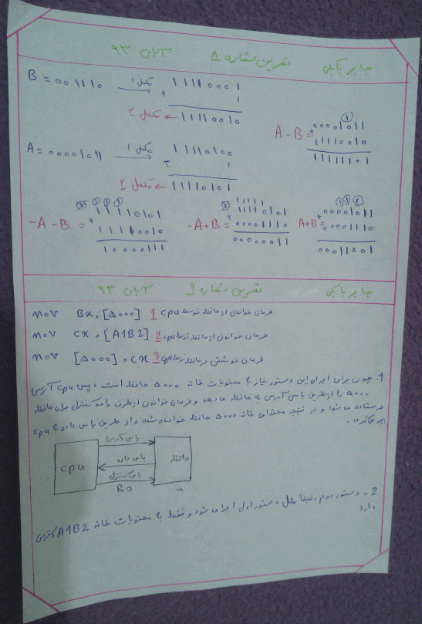 جابر بابکی تمرین شماره 8 آبان 93
B = 001110 مکمل 1 11110001
+ 1
11110010 ← مکمل 2
A = 00001011 مکمل 1 11110100
+ 1
11110101 ← مکمل 2
A - B = 00001011
11110010
11111101
-A - B = 11110101
+ 11110010
A + B = 00001011
+ 00001110
00011001
-A + B = 11110101
+ 00001110
جابر بابکی تمرین شماره 9 آبان 93
mov Bx, [5000] 1 فرمان خواندن از حافظه توسط cpu
mov cx, [A1B2] 2 فرمان خواندن از حافظه توسط cpu
mov [5000], cx 3 فرمان نوشتن در حافظه توسط cpu
1- چون برای اجرای این دستور نیاز به محتویات خانه 5000 حافظه است، پس cpu آدرس
5000 را از طریق باس آدرس به حافظه و فرمان خواندن از طریق باس کنترل برای حافظه
فرستاده می‌شود و در نتیجه محتوای خانه 5000 حافظه خوانده شده و از طریق باس داده به cpu
cpu
باس آدرس
باس داده
باس کنترل
RD
حافظه
2- دستور دوم دقیقا مثل دستور اول اجرا می‌شود و فقط به محتویات خانه A1B2
دارد